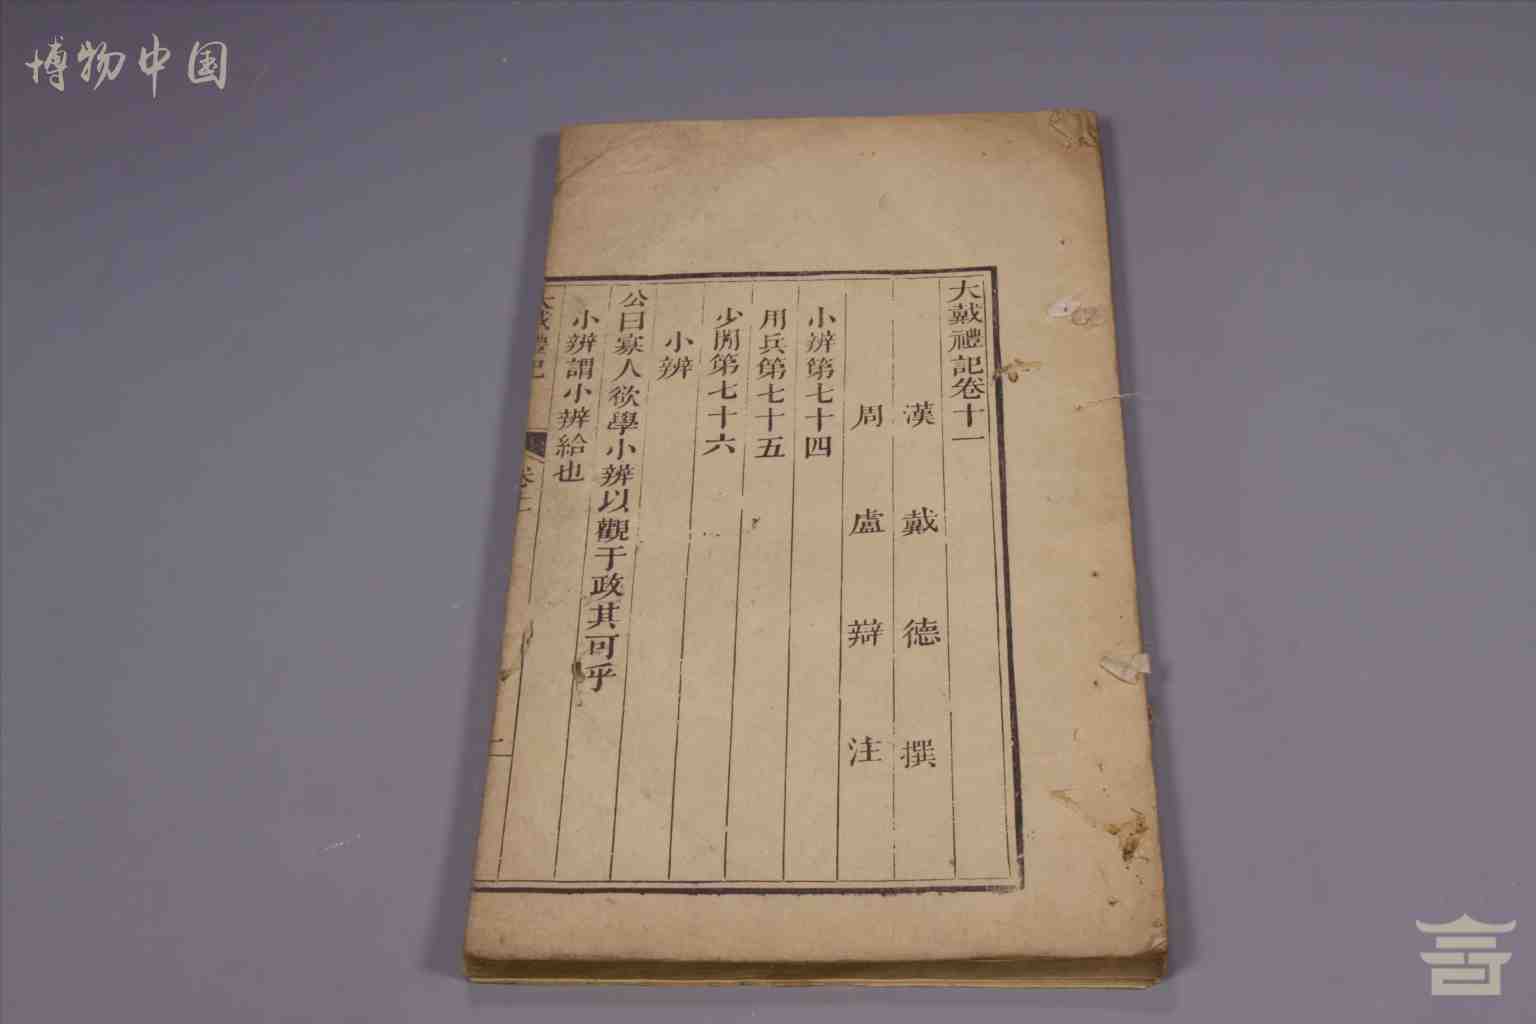 博物中国
大戴禮記卷十一
漢戴德撰
周盧辯注
小辨第七十四
用兵第七十五
少閒第七十六
小辨
公曰寡人欲學小辨以觀于政其可乎
小辨謂小辨給也
大戴禮記 卷十一 一